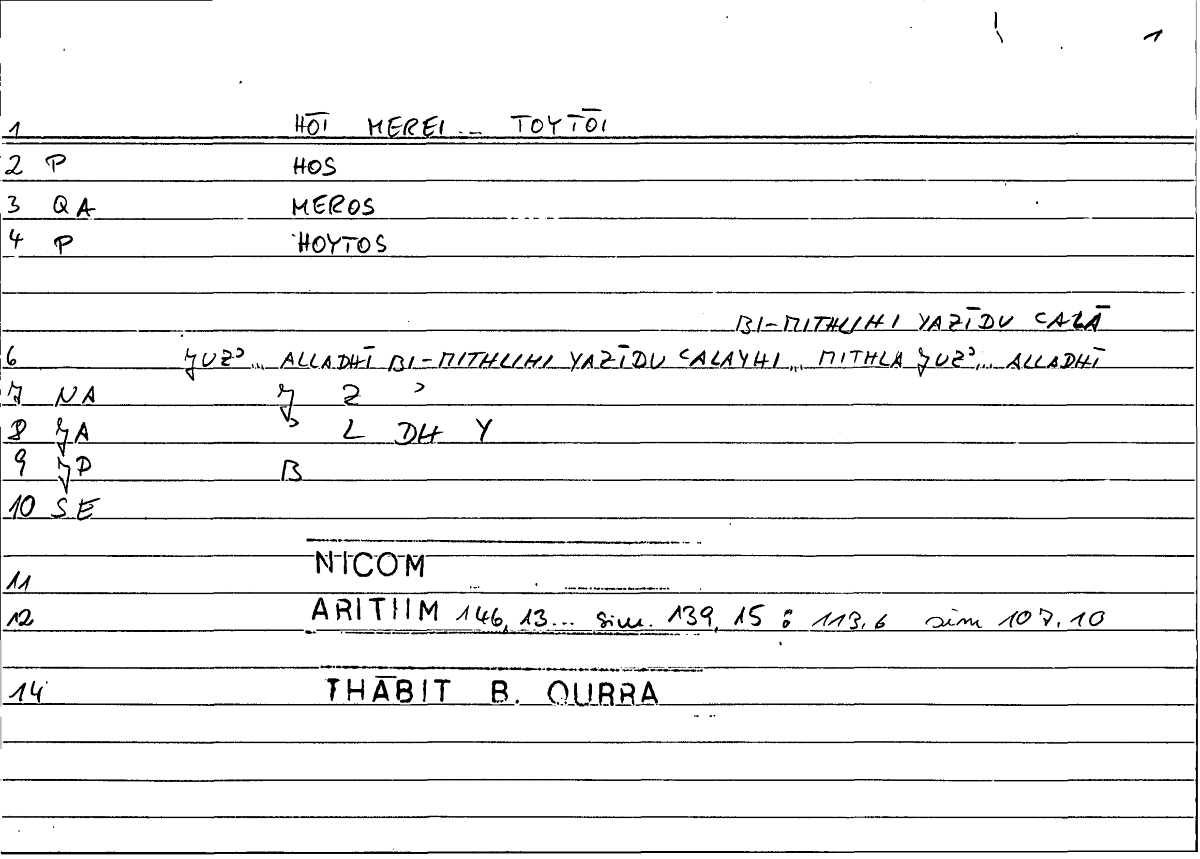 1
1 HŌI MEREI ... TOYTŌI
2 P HOS
3 QA MEROS
4 P HOYTOS
BI-MITHLIHI YAZĪDU ʿALĀ
6 ǰUZʾ... ALLADHĪ BI-MITHLIHI YAZĪDU ʿALAYHI... MITHLA ǰUZʾ... ALLADHĪ
7 NA ǰ Z ʾ
8 ǰA ʾ L DH Y
9 ǰP B
10 SE
11 NICOM
12 ARITIIM 146,13... sim. 139,15 : 113.6 sim 107.10
14 THĀBIT B. QURRA